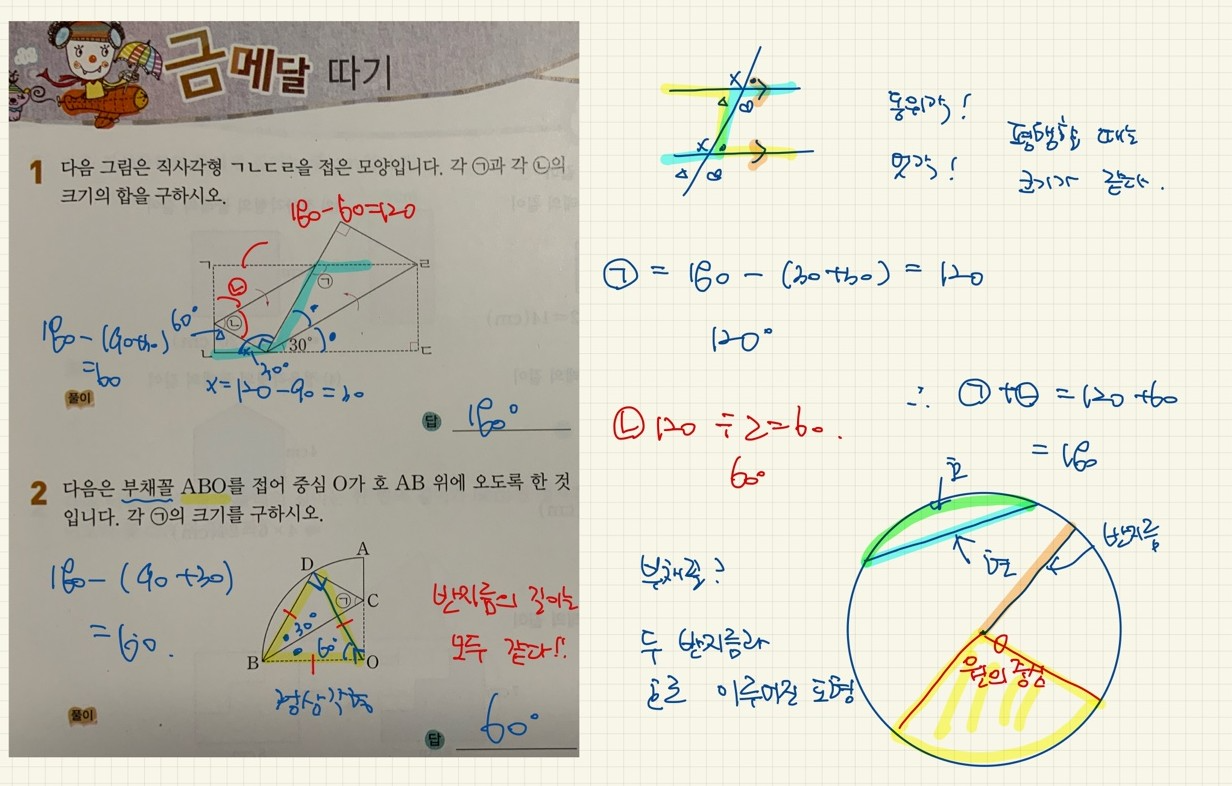 금메달 따기
1 다음 그림은 직사각형 ㄱㄴㄷㄹ을 접은 모양입니다. 각 ㉠과 각 ㉡의
크기의 합을 구하시오.
180-60=120
ㄱ
ㄹ
㉠
㉡
㉡
60°
180-(90+30)
=60
ㄴ
x
30°
ㄷ
30°
x=120-90=30
풀이
답 180°
2 다음은 부채꼴 ABO를 접어 중심 O가 호 AB 위에 오도록 한 것
입니다. 각 ㉠의 크기를 구하시오.
180-(90+30)
=60.
A
D
㉠
C
30°
60°
B
O
정삼각형
반지름의 길이는
모두 같다!!
풀이
답 60°
x
x
동위각!
엇각!
평행할 때는
크기가 같다.
㉠ = 180-(30+30) = 120
120°
㉡ 120÷2=60.
60°
∴ ㉠+㉡ = 120+60
= 180
호
현
반지름
O
원의 중심
부채꼴?
두 반지름과
호로 이루어진 도형